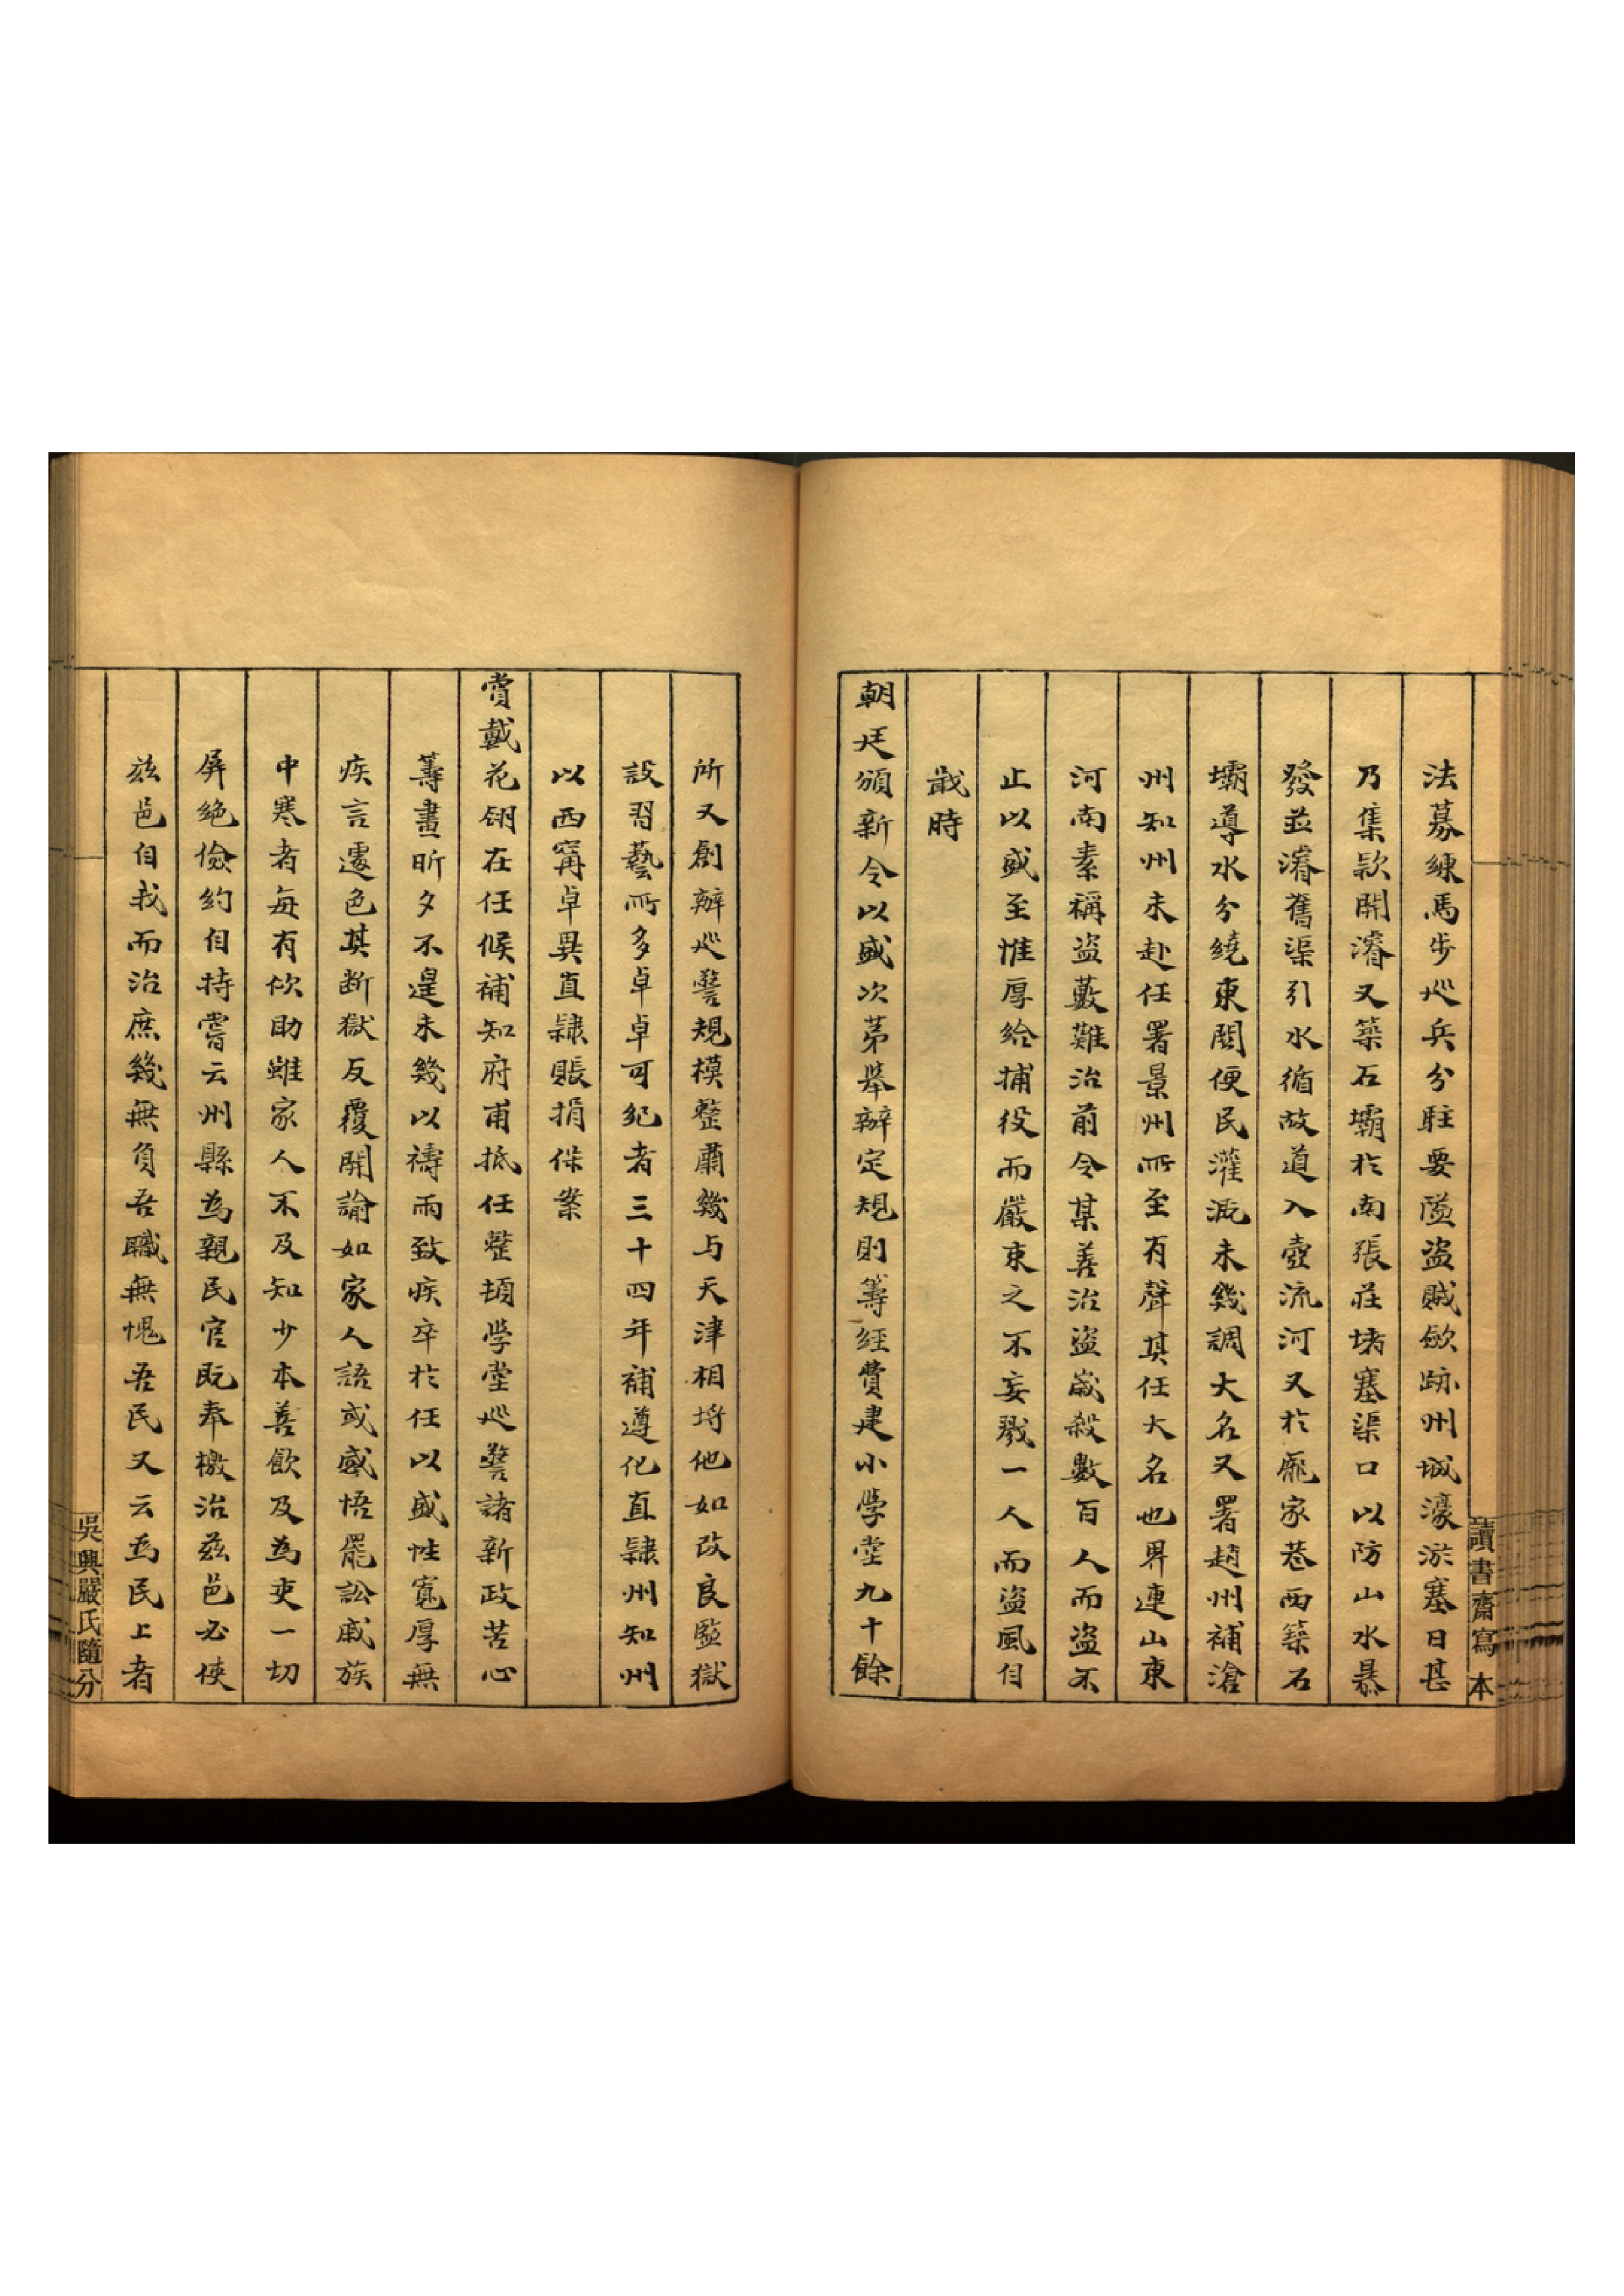 讀書齋寫本
法募練馬步巡兵分駐要隘盜賊歛跡州城濠淤塞日甚
乃集款開濬又築石壩於南張莊堵塞渠口以防山水暴
發並濬舊渠引水循故道入壺流河又於龐家巷西築石
壩導水分繞東關便民灌溉未幾調大名又署趙州補滄
州知州未赴任署景州所至有聲其任大名也界連山東
河南素稱盜藪難治前令某善治盜歲殺數百人而盜不
止以盛至惟厚給捕役而嚴束之不妄戮一人而盜風自
戢時
朝廷頒新令以盛次苐舉辦定規則籌經費建小學堂九十餘
所又創辦巡警規模整肅幾与天津相埒他如改良監獄
設習藝所多卓卓可紀者三十四年補遵化直隸州知州
以西甯卓異直隸賬捐保案
賞戴花翎在任候補知府甫抵任整頓學堂巡警諸新政苦心
籌畫昕夕不遑未幾以禱雨致疾卒於任以盛性寬厚無
疾言遽色其断獄反覆開諭如家人語或感悟罷訟戚族
中寒者每有佽助雖家人不及知少本善飲及為吏一切
屏絶儉約自持嘗云州縣為親民官既奉檄治茲邑必使
茲邑自我而治庶幾無負吾職無愧吾民又云為民上者
吳興嚴氏隨分